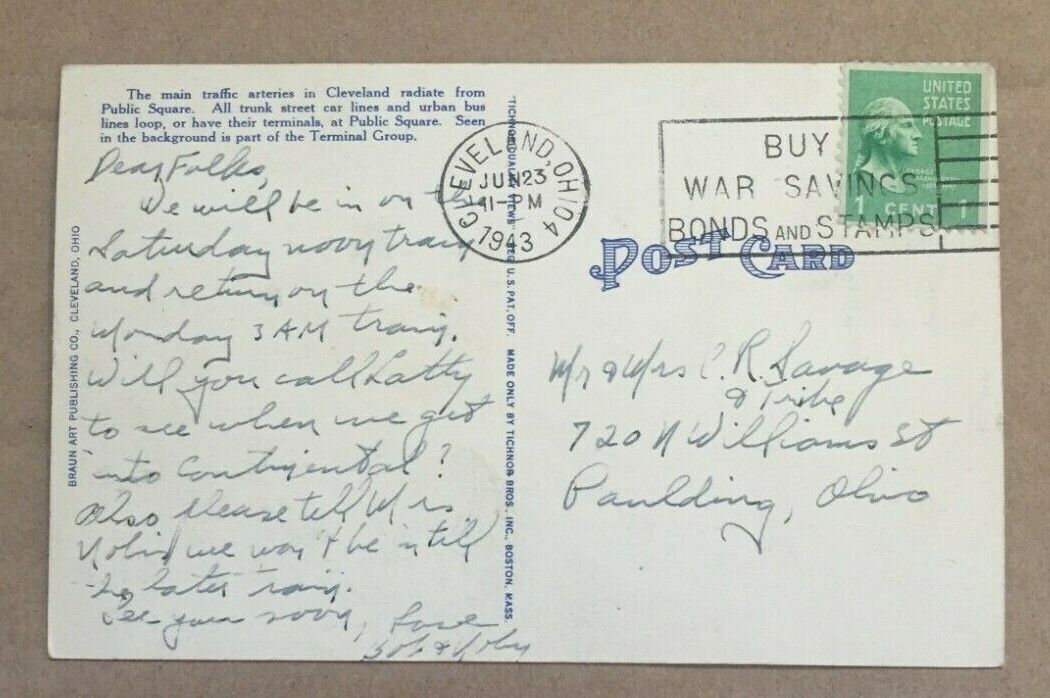 The main traffic arteries in Cleveland radiate from
Public Square. All trunk street car lines and urban bus
lines loop, or have their terminals, at Public Square. Seen
in the background is part of the Terminal Group.
Dear Folks,
We will be in on the
Saturday noon train
and return on the
Monday 3 AM train.
Will you call Latty
to see when we get
into Continental?
Also please tell Mrs
we won't be in till
the later train.
See you soon, Love
Bob &
BRAUN ART PUBLISHING CO., CLEVELAND, OHIO
"TICHNOR QUALITY VIEWS" REG. U. S. PAT. OFF. MADE ONLY BY TICHNOR BROS., INC., BOSTON, MASS.
CLEVELAND, OHIO 4
JUN 23
11-PM
1943
BUY
WAR SAVINGS
BONDS AND STAMPS
UNITED
STATES
POSTAGE
1 CENT 1
POST CARD
Mr & Mrs C. R. Savage
& Tribe
720 N Williams St
Paulding, Ohio